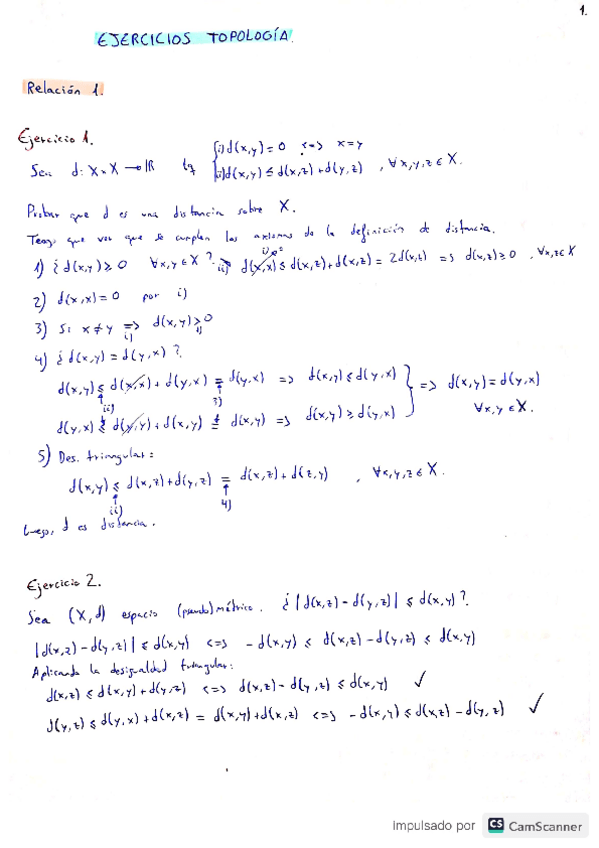 1.
EJERCICIOS TOPOLOGÍA.
Relación 1.
Ejercicio 1.
Sea d: X×X → ℝ tq { i) d(x,y) = 0 <=> x=y
ii) d(x,y) ≤ d(x,z) + d(y,z) , ∀x,y,z ∈ X.
Probar que d es una distancia sobre X.
Tenemos que ver que se cumplen los axiomas de la definición de distancia.
1) ¿ d(x,y) ≥ 0 ∀x,y ∈ X ? ii) d(x,x) ≤ d(x,z) + d(x,z) = 2d(x,z) => d(x,z) ≥ 0 , ∀x,z ∈ X
2) d(x,x) = 0 por i)
3) Si x ≠ y => d(x,y) > 0
i) 1)
4) ¿ d(x,y) = d(y,x) ?
d(x,y) ≤ d(x,x) + d(y,x) = d(y,x) => d(x,y) ≤ d(y,x) } => d(x,y) = d(y,x)
ii) 3) ∀x,y ∈ X.
d(y,x) ≤ d(y,y) + d(x,y) = d(x,y) => d(x,y) ≥ d(y,x)
5) Des. triangular:
d(x,y) ≤ d(x,z) + d(y,z) = d(x,z) + d(z,y) , ∀x,y,z ∈ X.
ii) 4)
Luego, d es distancia.
Ejercicio 2.
Sea (X,d) espacio (pseudo)métrico. ¿ |d(x,z) - d(y,z)| ≤ d(x,y) ?
|d(x,z) - d(y,z)| ≤ d(x,y) <=> -d(x,y) ≤ d(x,z) - d(y,z) ≤ d(x,y)
Aplicando la desigualdad triangular:
d(x,z) ≤ d(x,y) + d(y,z) <=> d(x,z) - d(y,z) ≤ d(x,y) ✓
d(y,z) ≤ d(y,x) + d(x,z) = d(x,y) + d(x,z) <=> -d(x,y) ≤ d(x,z) - d(y,z) ✓
Impulsado por CS CamScanner